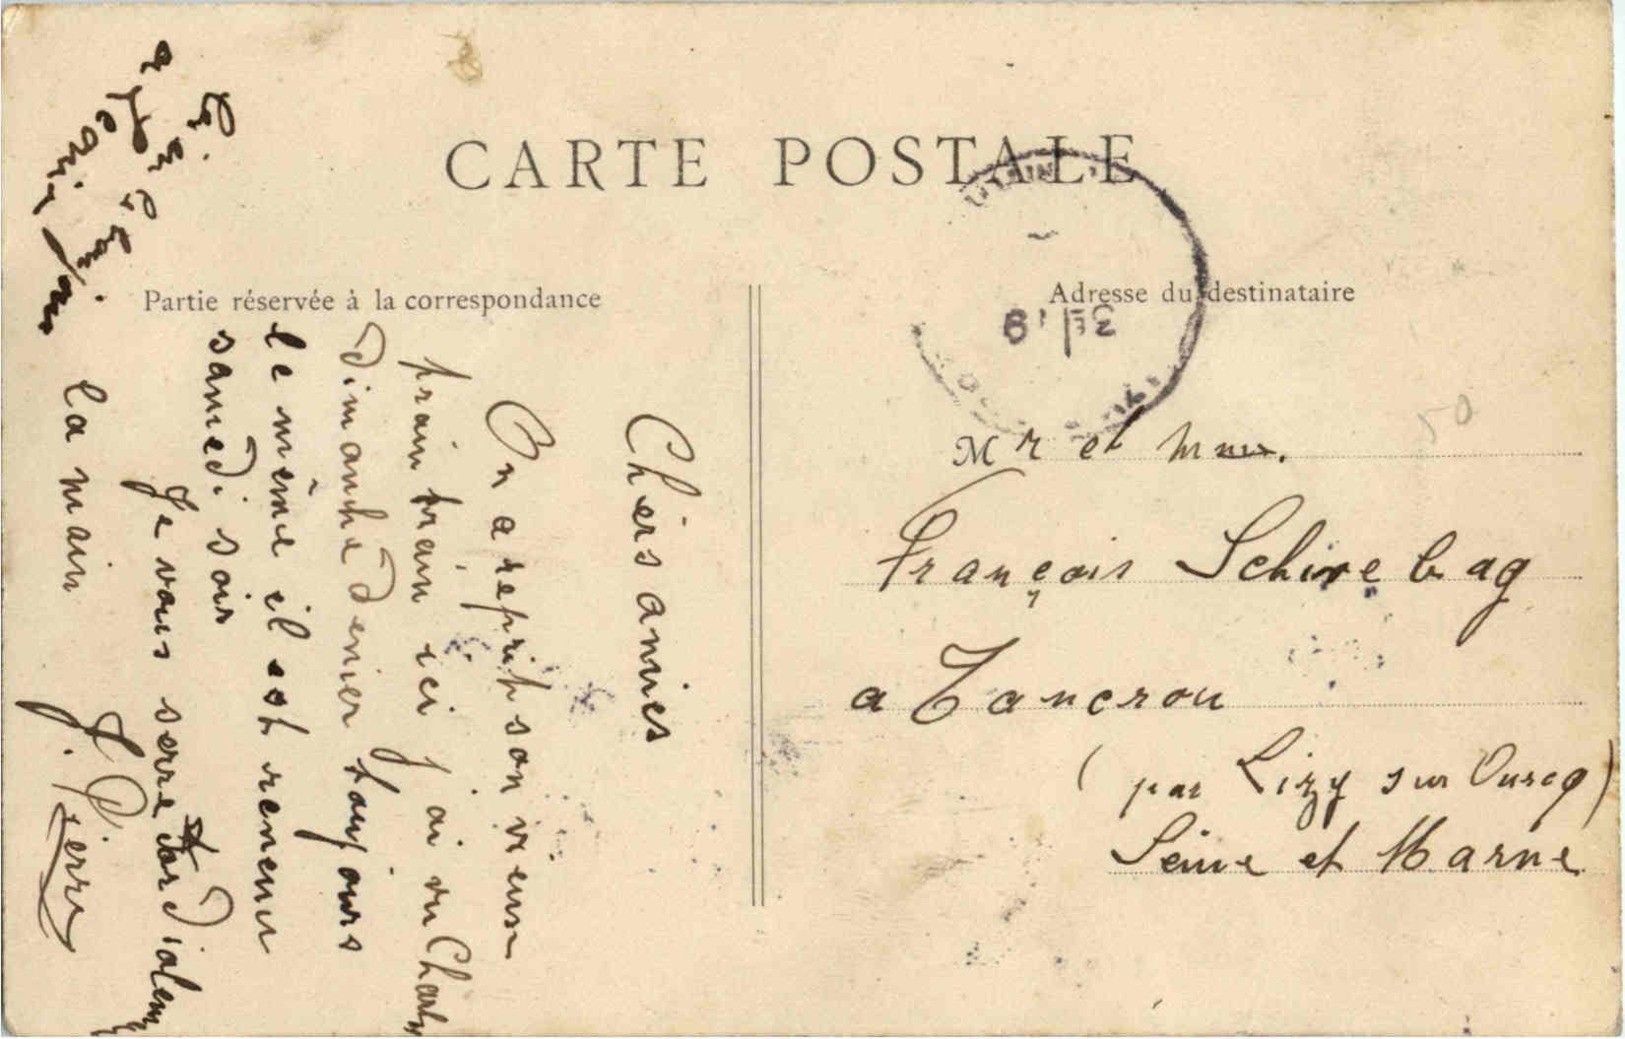 CARTE POSTALE
Partie réservée à la correspondance
Adresse du destinataire
Chèrs amies
On a reprit son vieux
train train ici j'ai vu Charly
dimanche denier toujours
le même il est reneur
samedi soir
Je vous serre cordialem
la main
J. Pierre
a Jeanin
Mr et Mme.
François Schirebag
a Tancrou
(par Lizy sur Ourcq)
Seine et Marne
50